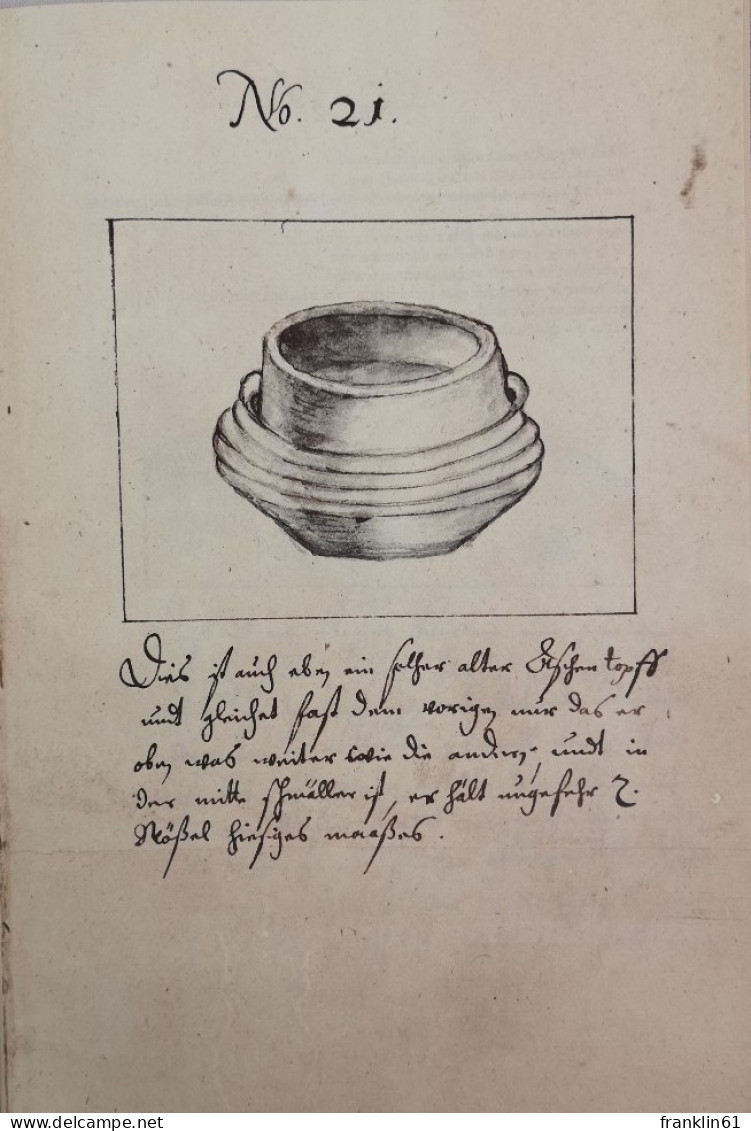 No. 21.
Dies ist auch eben ein solher alter Aschentopff
undt gleichet fast dem vorigen nur das er
oben was weiter wie die andern, undt in
der mitte schmäller ist, er hält ungefehr 2.
Nößel hiesiges maaßes.
www.delcampe.net
franklin61